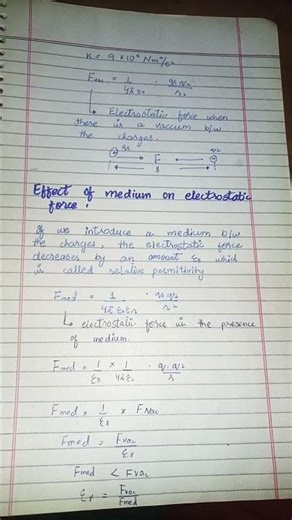 K = 9 × 10⁹ Nm²/c²
Fvac = 1/4πε₀ · q₁q₂/r²
↳ Electrostatic force when
there is a vaccum b/w
the charges.
q₁ F q₂
r
Effect of medium on electrostatic
force :
If we introduce a medium b/w
the charges, the electrostatic force
decreases by an amount εr which
is called relative permitivity
Fmed = 1/4πε₀εr · q₁q₂/r²
↳ electrostatic force in the presence
of medium.
Fmed = 1/εr × 1/4πε₀ · q₁q₂/r
Fmed = 1/εr × Fvac
Fmed = Fvac/εr
Fmed < Fvac
εr = Fvac/Fmed